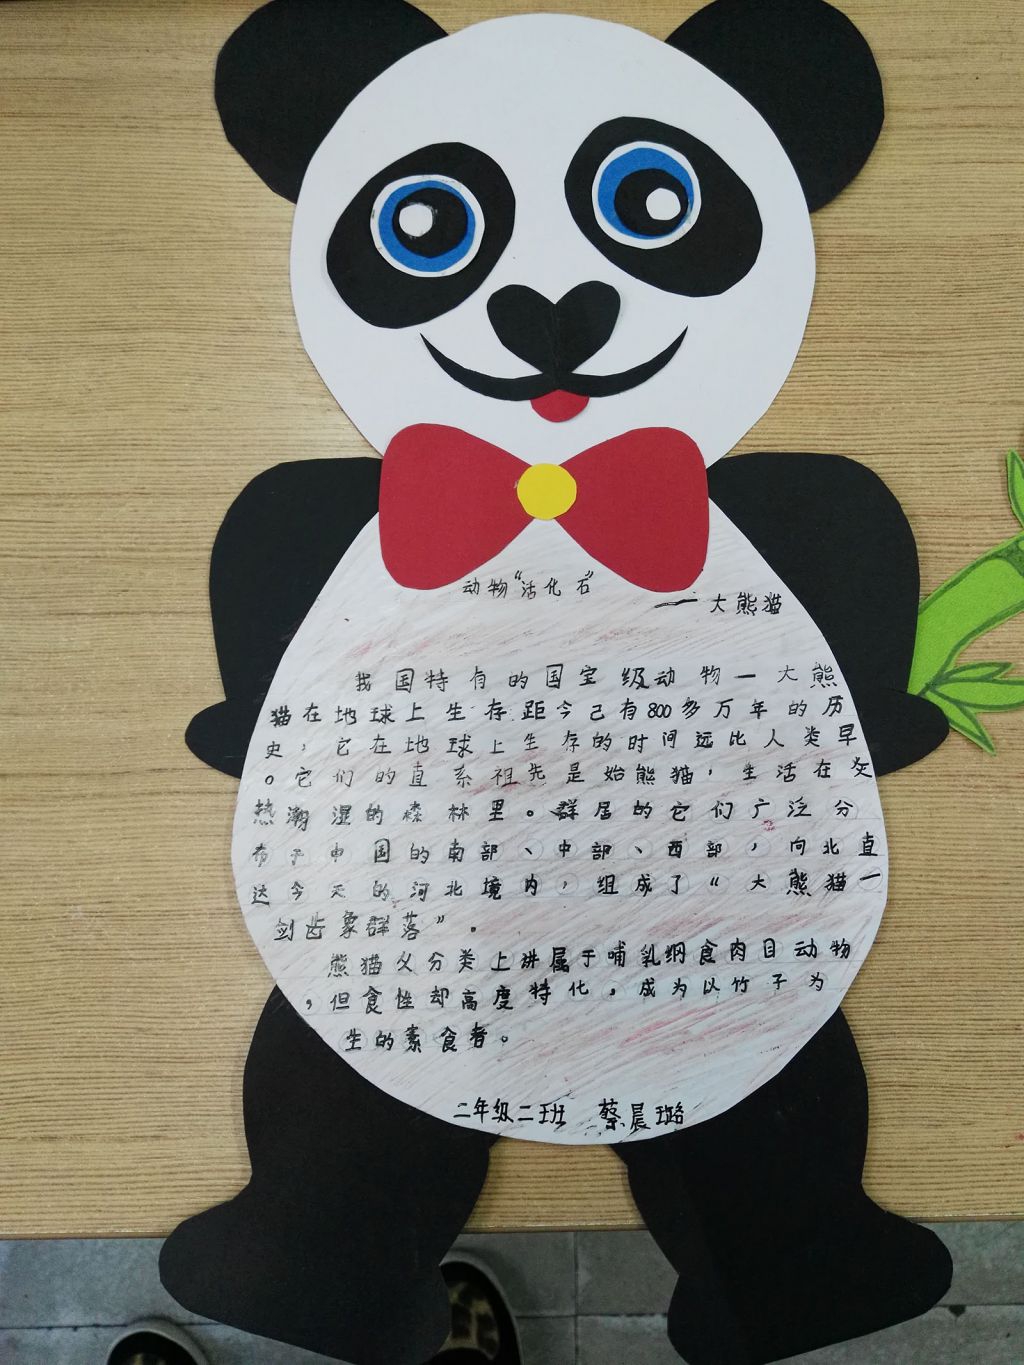 动物“活化石”
——大熊猫
我国特有的国宝级动物—大熊
猫在地球上生存距今己有800多万年的历
史，它在地球上生存的时间远比人类早
。它们的直系祖先是始熊猫，生活在炎
热潮湿的森林里。群居的它们广泛分
布于中国的南部、中部、西部，向北直
达今天的河北境内，组成了“大熊猫一
剑齿象群落”。
熊猫父分类上讲属于哺乳纲食肉目动物
，但食性却高度特化，成为以竹子为
生的素食者。
二年级二班 蔡晨璐